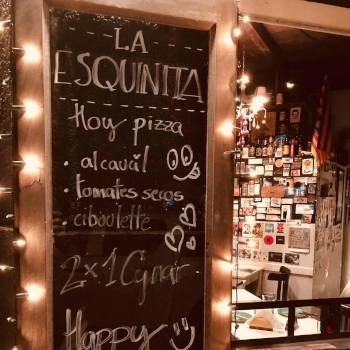 LA
ESQUINITA
Hoy pizza
• alcauăl
• tomates secos
ciboulette
2x1 Cynar
Happy